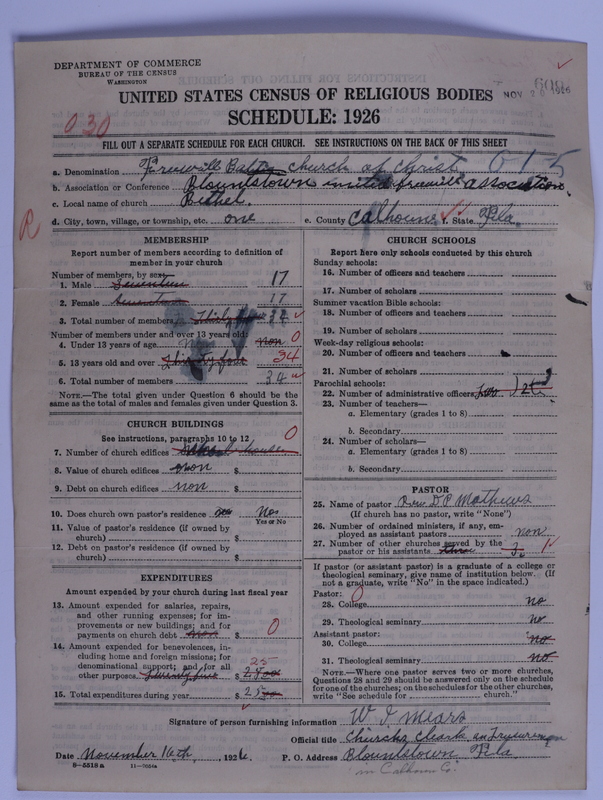 DEPARTMENT OF COMMERCE
BUREAU OF THE CENSUS
WASHINGTON
NOV 20 1926
UNITED STATES CENSUS OF RELIGIOUS BODIES
SCHEDULE: 1926
030
FILL OUT A SEPARATE SCHEDULE FOR EACH CHURCH. SEE INSTRUCTIONS ON THE BACK OF THIS SHEET
a. Denomination Freewill church of Christ 615
b. Association or Conference Blountstown united freewill association
c. Local name of church Bethel
d. City, town, village, or township, etc. one e. County Calhoune f. State Fla.
R
MEMBERSHIP
Report number of members according to definition of member in your church
Number of members, by sex:
1. Male Seventeen 17
2. Female 17
3. Total number of members Thirty four
Number of members under and over 13 years old:
4. Under 13 years of age non 0
5. 13 years old and over Thirty four 34
6. Total number of members 34
NOTE.—The total given under Question 6 should be
same as the total of males and females given under Question 3.
CHURCH BUILDINGS
See instructions, paragraphs 10 to 12 0
7. Number of church edifices School house
8. Value of church edifices non $
9. Debt on church edifices non $
10. Does church own pastor's residence No
Yes or No
11. Value of pastor's residence (if owned by
church) $
12. Debt on pastor's residence (if owned by
church) $
EXPENDITURES
Amount expended by your church during last fiscal year
13. Amount expended for salaries, repairs,
and other running expenses; for im-
provements or new buildings; and for
payments on church debt non $ 0
14. Amount expended for benevolences, in-
cluding home and foreign missions; for
denominational support; and for all 25
other purposes. Twenty five $ 2500
15. Total expenditures during year $ 2500
CHURCH SCHOOLS
Report here only schools conducted by this church
Sunday schools:
16. Number of officers and teachers
17. Number of scholars
Summer vacation Bible schools:
18. Number of officers and teachers
19. Number of scholars
Week-day religious schools:
20. Number of officers and teachers
21. Number of scholars
Parochial schools:
22. Number of administrative officers
23. Number of teachers—
a. Elementary (grades 1 to 8)
b. Secondary
24. Number of scholars—
a. Elementary (grades 1 to 8)
b. Secondary
PASTOR
25. Name of pastor Rev D P Mathews
(If church has no pastor, write "None")
26. Number of ordained ministers, if any, em-
ployed as assistant pastors non
27. Number of other churches served by the
pastor or his assistants three 3
If pastor (or assistant pastor) is a graduate of a college or
theological seminary, give name of institution below. (If
not a graduate, write "No" in the space indicated.)
Pastor: 0
28. College no
29. Theological seminary no
Assistant pastor:
30. College no
31. Theological seminary no
NOTE.—Where one pastor serves two or more churches,
Questions 28 and 29 should be answered only on the schedule
for one of the churches; on the schedules for the other churches,
write "See schedule for church."
Signature of person furnishing information W. I. Mears
Official title Church Cleark
Date November 16th, 1926. P. O. Address Blountstown Fla
8—5518 a
in Calhoun Co.